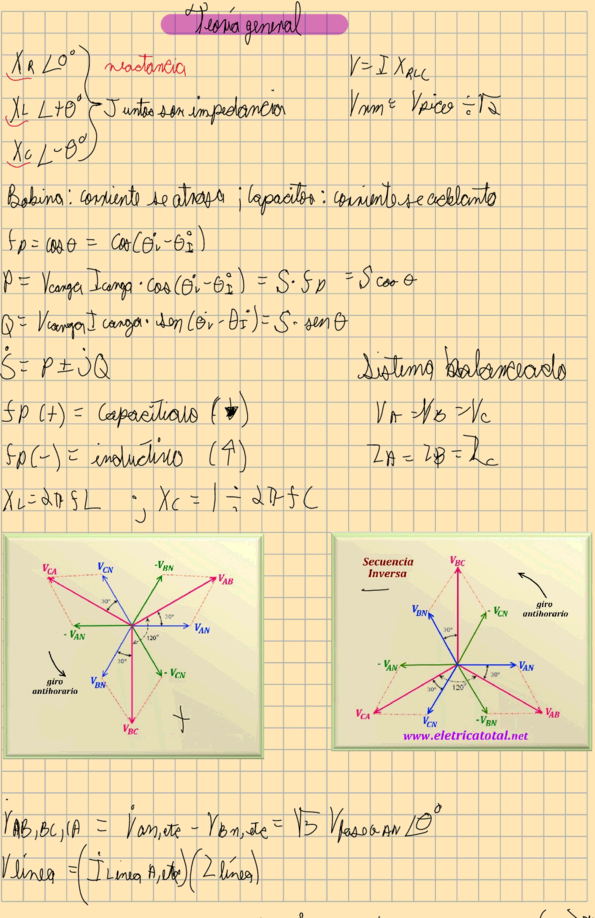 Teoría general
X_R ∠0°
reactancia
V = I X_RLC
X_L ∠+θ°
Juntos son impedancia
Vrms = Vpico ÷ √2
X_C ∠-θ°
Bobina: corriente se atrasa ; Capacitor: corriente se adelanta
fp = cos θ = cos(θ°v - θ°I)
P = Vcarga Icarga · cos(θ°v - θ°I) = S · fp = S cos θ
Q = Vcarga Icarga · sen(θ°v - θ°I) = S · sen θ
Ṡ = P ± jQ
Sistema balanceado
fp (+) = Capacitivo (↓)
V_A = V_B = V_C
fp (-) = inductivo (↑)
Z_A = Z_B = Z_C
X_L = 2πfL ; X_C = 1 ÷ 2πfC
V_CA V_CN -V_BN V_AB
30° 30°
-V_AN 120° V_AN
30°
giro antihorario
V_BN -V_CN
V_BC
+
Secuencia Inversa
V_BC
giro antihorario
V_BN -V_CN
30°
-V_AN V_AN
30° 30°
120°
V_CA V_CN -V_BN V_AB
www.eletricatotal.net
V̇_AB,BC,CA = V̇an,etc - V̇Bn,etc = √3 Vfase o AN ∠θ°
V línea = (İ Línea A,etc)(Z línea)